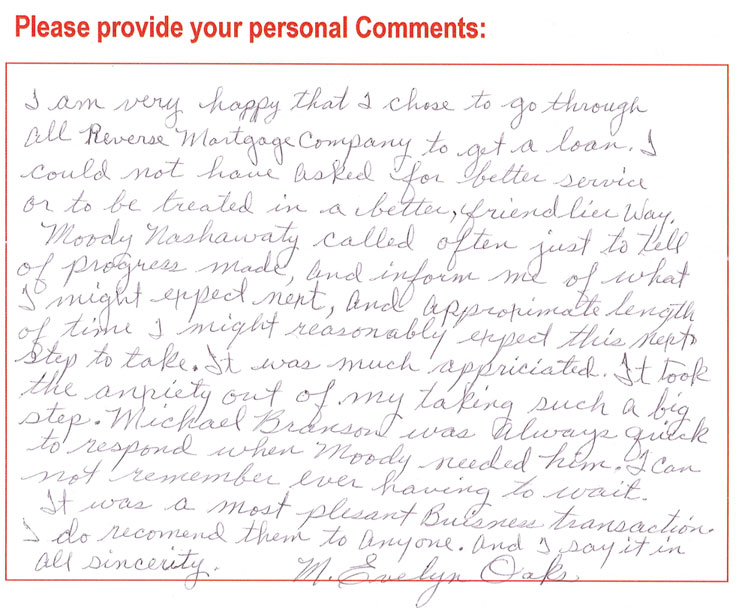 Please provide your personal Comments:
I am very happy that I chose to go through
All Reverse Mortgage Company to get a loan. I
could not have asked for better service
or to be treated in a better, friendlier way.
Moody Nashawaty called often just to tell
of progress made, and inform me of what
I might expect next, and approximate length
of time I might reasonably expect this next
step to take. It was much appriciated. It took
the anxiety out of my taking such a big
step. Michael Branson was always quick
to respond when Moody needed him. I can
not remember ever having to wait.
It was a most plesant Buisness transaction.
I do recomend them to anyone. And I say it in
all sincerity. M. Evelyn Oaks